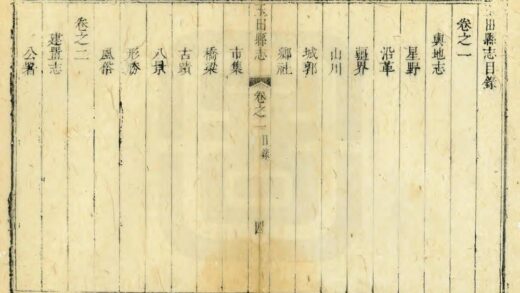 玉田縣志目錄
卷之一
輿地志
星野
沿革
疆界
山川
城郭
鄉社
玉田縣志
卷之一 目錄
四
市集
橋梁
古蹟
八景
形勝
風俗
卷之二
建置志
公署